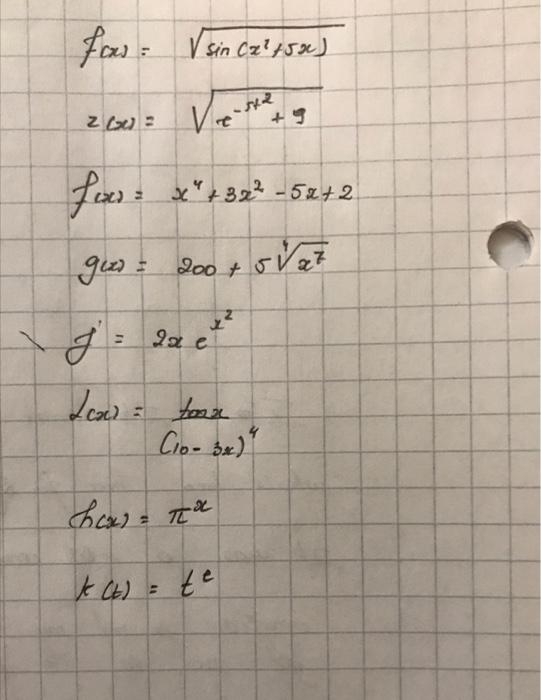 f(x) = √(sin(x²+5x))
z(x) = √(e^(-5t²) + 9)
f(x) = x⁴ + 3x² - 5x + 2
g(x) = 200 + 5 ∜(x⁷)
y' = 2x e^(x²)
L(x) = tan x / (10 - 3x)⁴
h(x) = π^x
k(t) = t^e